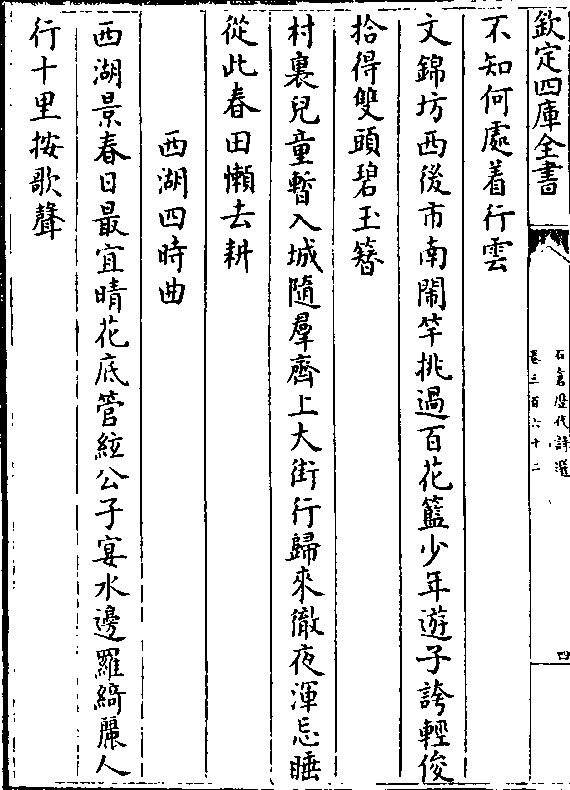 欽定四庫全書
石倉歷代詩選
卷三百六十二
四
不知何處着行雲
文錦坊西後市南鬧竿挑過百花籃少年遊子誇輕俊
拾得雙頭碧玉簪
村裏兒童暫入城隨羣齊上大街行歸來徹夜渾忘睡
從此春田懶去耕
西湖四時曲
西湖景春日最宜晴花底管絃公子宴水邊羅綺麗人
行十里按歌聲